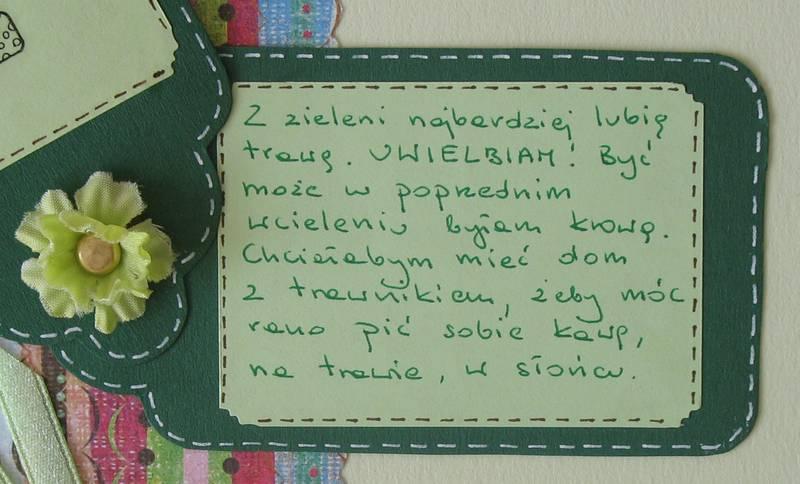 Z zieleni najbardziej lubię
trawę. UWIELBIAM! Być
może w poprzednim
wcieleniu byłam krową.
Chciałabym mieć dom
z trawnikiem, żeby móc
rano pić sobie kawę,
na trawie, w słońcu.